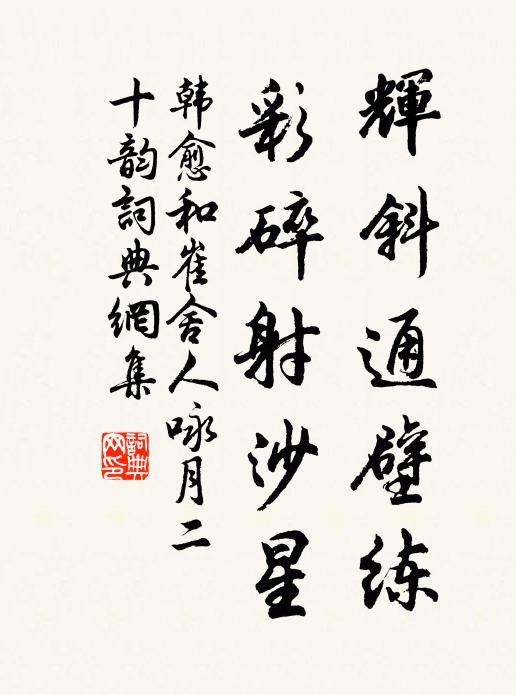 輝斜通壁练
彩碎射沙星
韩愈和崔舍人咏月二
十韵詞典網集
詞典网印